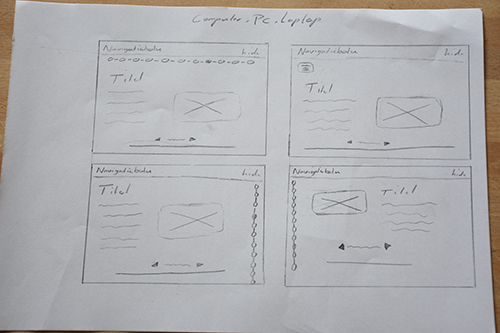 Computer . Pc . Laptop
Navigatiebalk hide
Titel
Navigatiebalk hide
Titel
Navigatiebalk hide
Titel
Navigatiebalk hide
Titel